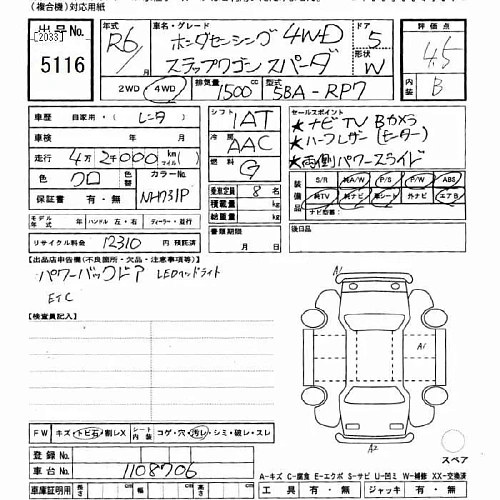 (複合機)対応用紙
出品No. [2033]
5116
年式 R6年/月
車名・グレード ホンダセーシング 4WD
スラップワゴン スパーダ
ドア 5
形状 W
評価点 4.5
内装 B
2WD 4WD
排気量 1500cc
型式 5BA-RP7
車歴 自家用・(レンタ)
シフト 1AT
セールスポイント
★ナビ TV Bカメラ
★ハーフレザー (ヒーター)
★両側パワースライド
車検 年 月
冷房 AAC
走行 4万2千000km(マイル)
燃料 G
色 クロ
色替
カラーNo. NH731P
保証書 有・無
乗車定員 8名
積載量 kg
総重量 kg
装備品 S/R 純A/W P/S P/W ABS
純TV 純ナビ 革シート 外ナビ エアB
ナビ型番
モデル年式 年 ハンドル 左・右 ディーラー・並行
書類期限 月 日
後日品
リサイクル料金 12310円 預託済
【出品店申告欄(不良箇所・欠品・注意事項等)】
パワーバックドア LEDヘッドライト
ETC
【検査員記入】
A1
A1
A2
スペア
FW キズ・トビ石・割レX
シート内装 コゲ・穴・汚レ・シミ・破レ・スレ
登録No.
車台No. 1108706
A-キズ C-腐食 E-エクボ S-サビ U-凹ミ W-補修 XX-交換済
車庫証明用 長さ cm 幅 cm 高さ cm
工具 有・無 ジャッキ 有・無